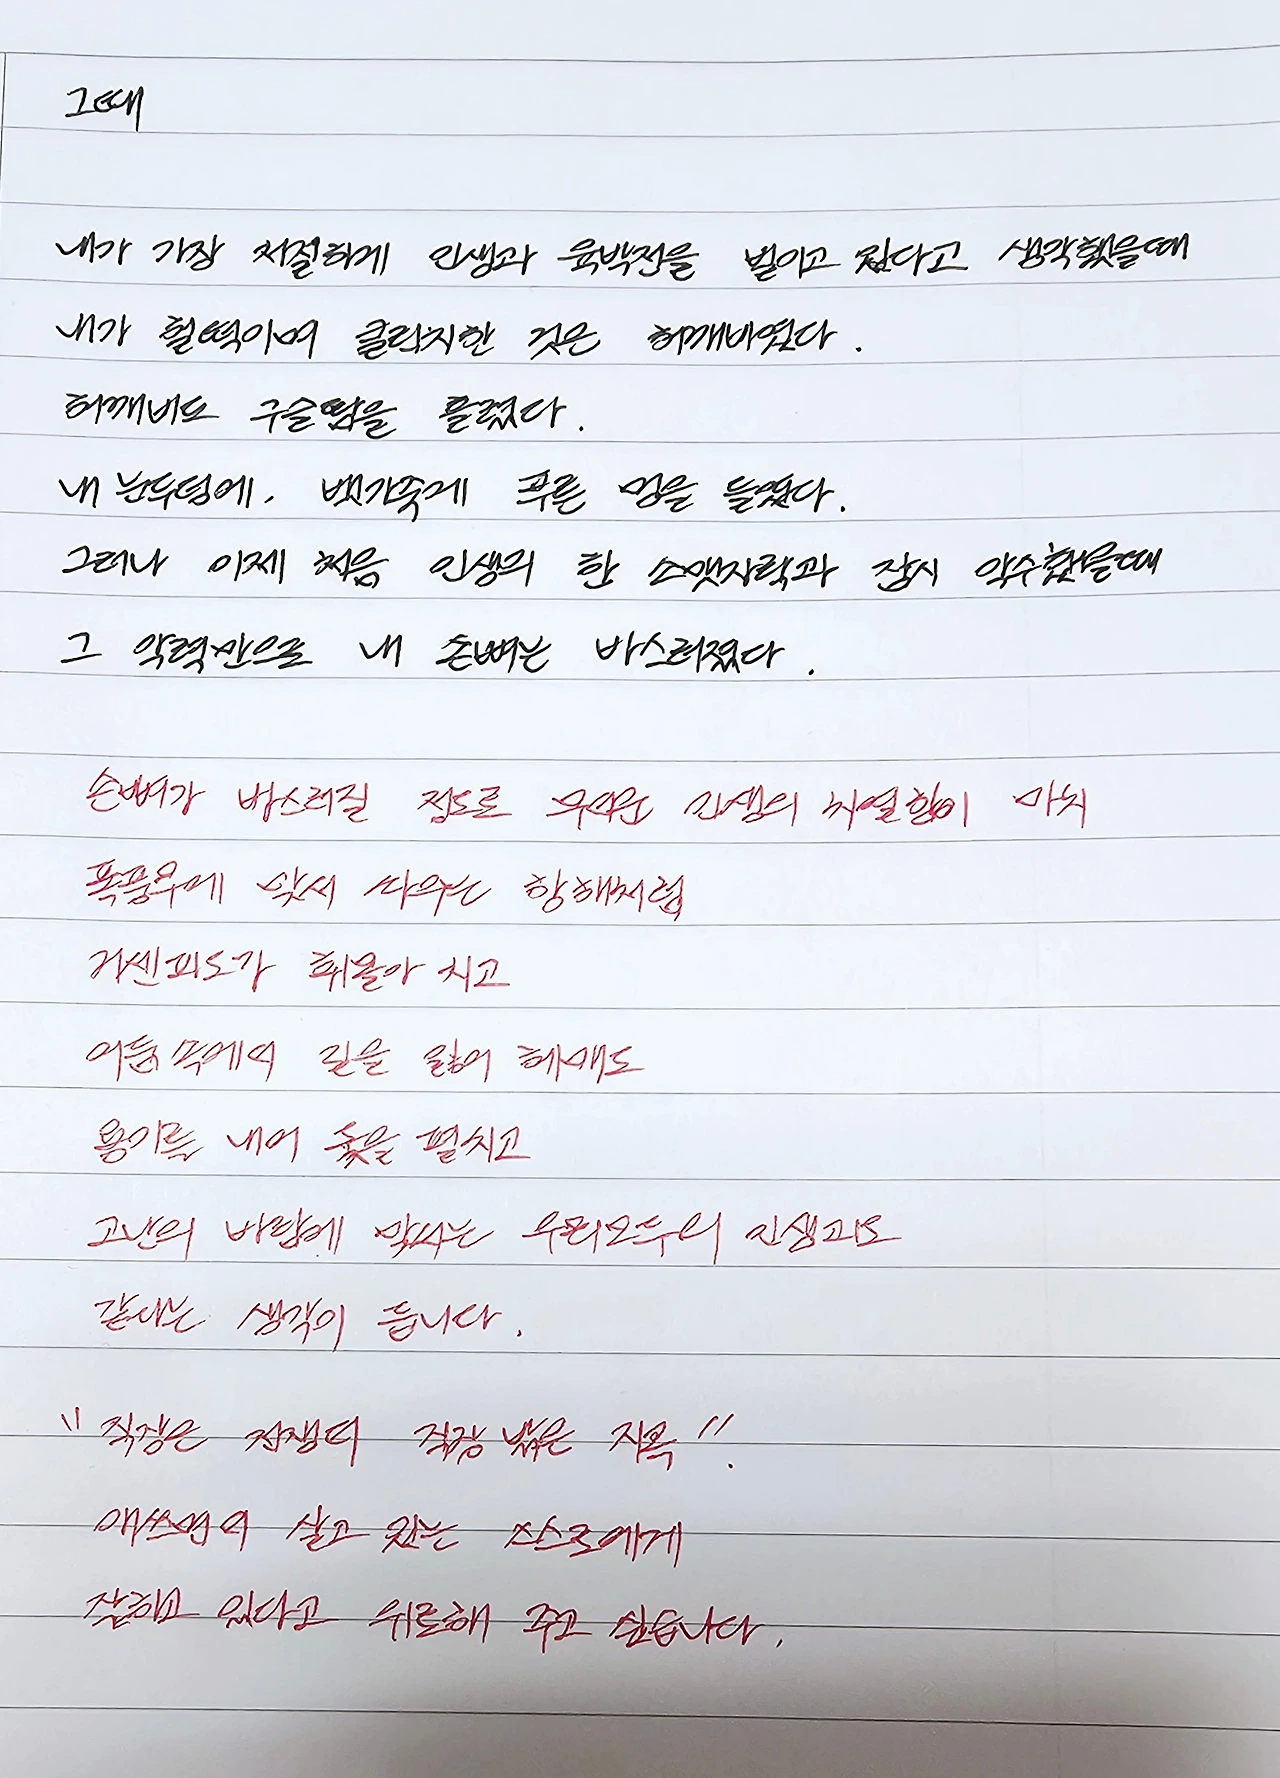 그때
내가 가장 처절하게 인생과 육박전을 벌이고 있다고 생각했을때
내가 헐떡이며 클린치한 것은 허깨비였다.
허깨비도 구슬땀을 흘렸다.
내 눈두덩에, 뱃가죽에 푸른 멍을 들였다.
그러나 이제 처음 인생의 한 소맷자락과 잠시 악수했을때
그 악력만으로 내 손뼈는 바스러졌다.
손뼈가 바스러질 정도로 무서운 인생의 치열함이 마치
폭풍우에 맞서 싸우는 항해처럼
거센파도가 휘몰아 치고
어둠속에서 길을 잃어 헤매도
용기를 내어 돛을 펼치고
고난의 바람에 맞서는 우리모두의 인생과도
같다는 생각이 듭니다.
"직장은 전쟁터 직장 밖은 지옥".
애쓰며 살고 있는 스스로에게
잘하고 있다고 위로해 주고 싶습니다.